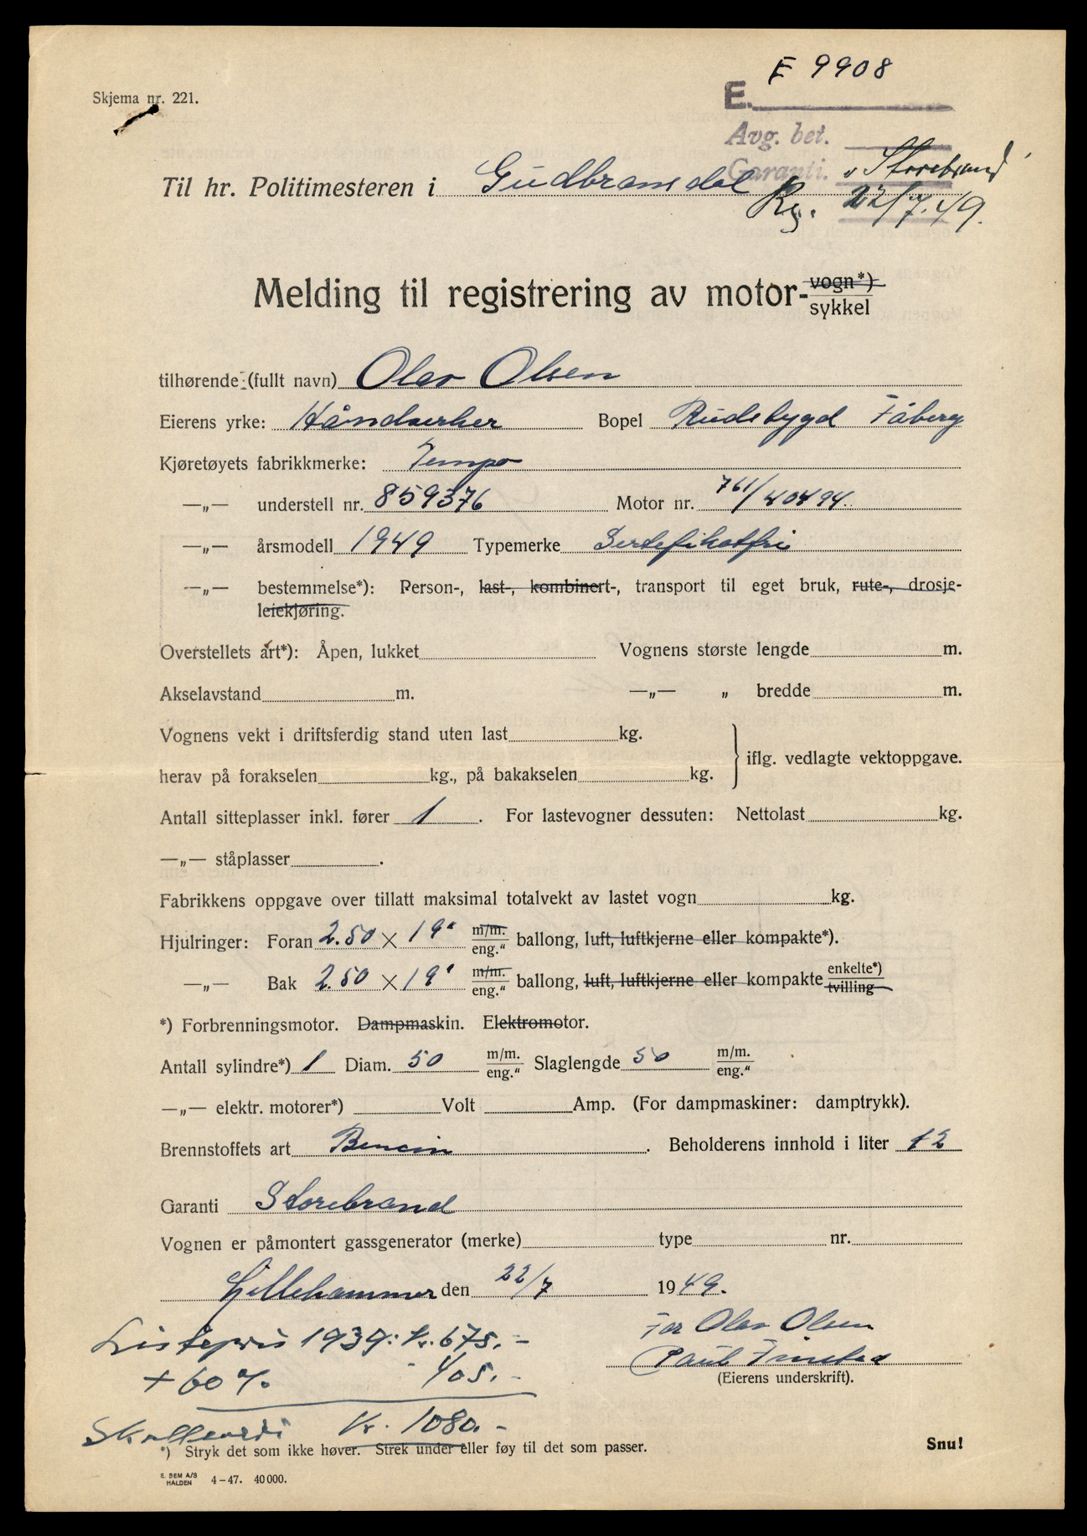 E 9908
Skjema nr. 221.
E.
Avg. bet.
Garanti. Storebrand
Til hr. Politimesteren i Gudbransdal
Rg. 22/7.49.
Melding til registrering av motor-vogn*)
sykkel
tilhørende: (fullt navn) Olav Olsen
Eierens yrke: Håndverker Bopel Rudsbygd Fåberg
Kjøretøyets fabrikkmerke: Tempo
—„— understell nr. 859376 Motor nr. 761/40494.
—„— årsmodell 1949 Typemerke Sertefikatfri
—„— bestemmelse*): Person-, last-, kombinert-, transport til eget bruk, rute-, drosje-
leiekjøring.
Overstellets art*): Åpen, lukket Vognens største lengde m.
Akselavstand m. —„— „ bredde m.
Vognens vekt i driftsferdig stand uten last kg.
iflg. vedlagte vektoppgave.
herav på forakselen kg., på bakakselen kg.
Antall sitteplasser inkl. fører 1. For lastevogner dessuten: Nettolast kg.
—„— ståplasser .
Fabrikkens oppgave over tillatt maksimal totalvekt av lastet vogn kg.
Hjulringer: Foran 2.50 × 19" m/m. eng." ballong, luft, luftkjerne eller kompakte*).
—„— Bak 2.50 × 19" m/m. eng." ballong, luft, luftkjerne eller kompakte enkelte*) tvilling
*) Forbrenningsmotor. Dampmaskin. Elektromotor.
Antall sylindre*) 1 Diam. 50 m/m. eng." Slaglengde 50 m/m. eng."
—„— elektr. motorer*) Volt Amp. (For dampmaskiner: damptrykk).
Brennstoffets art Bencin . Beholderens innhold i liter 12
Garanti Storebrand
Vognen er påmontert gassgenerator (merke) type nr.
Lillehammer den 22/7 1949.
For Olav Olsen
Listepris 1939: kr. 675.-
Paul
(Eierens underskrift).
+ 60 % 405.-
Skatteverdi Kr. 1080.-
*) Stryk det som ikke høver. Strek under eller føy til det som passer.
Snu!
E. SEM A/S
HALDEN 4-47. 40 000.